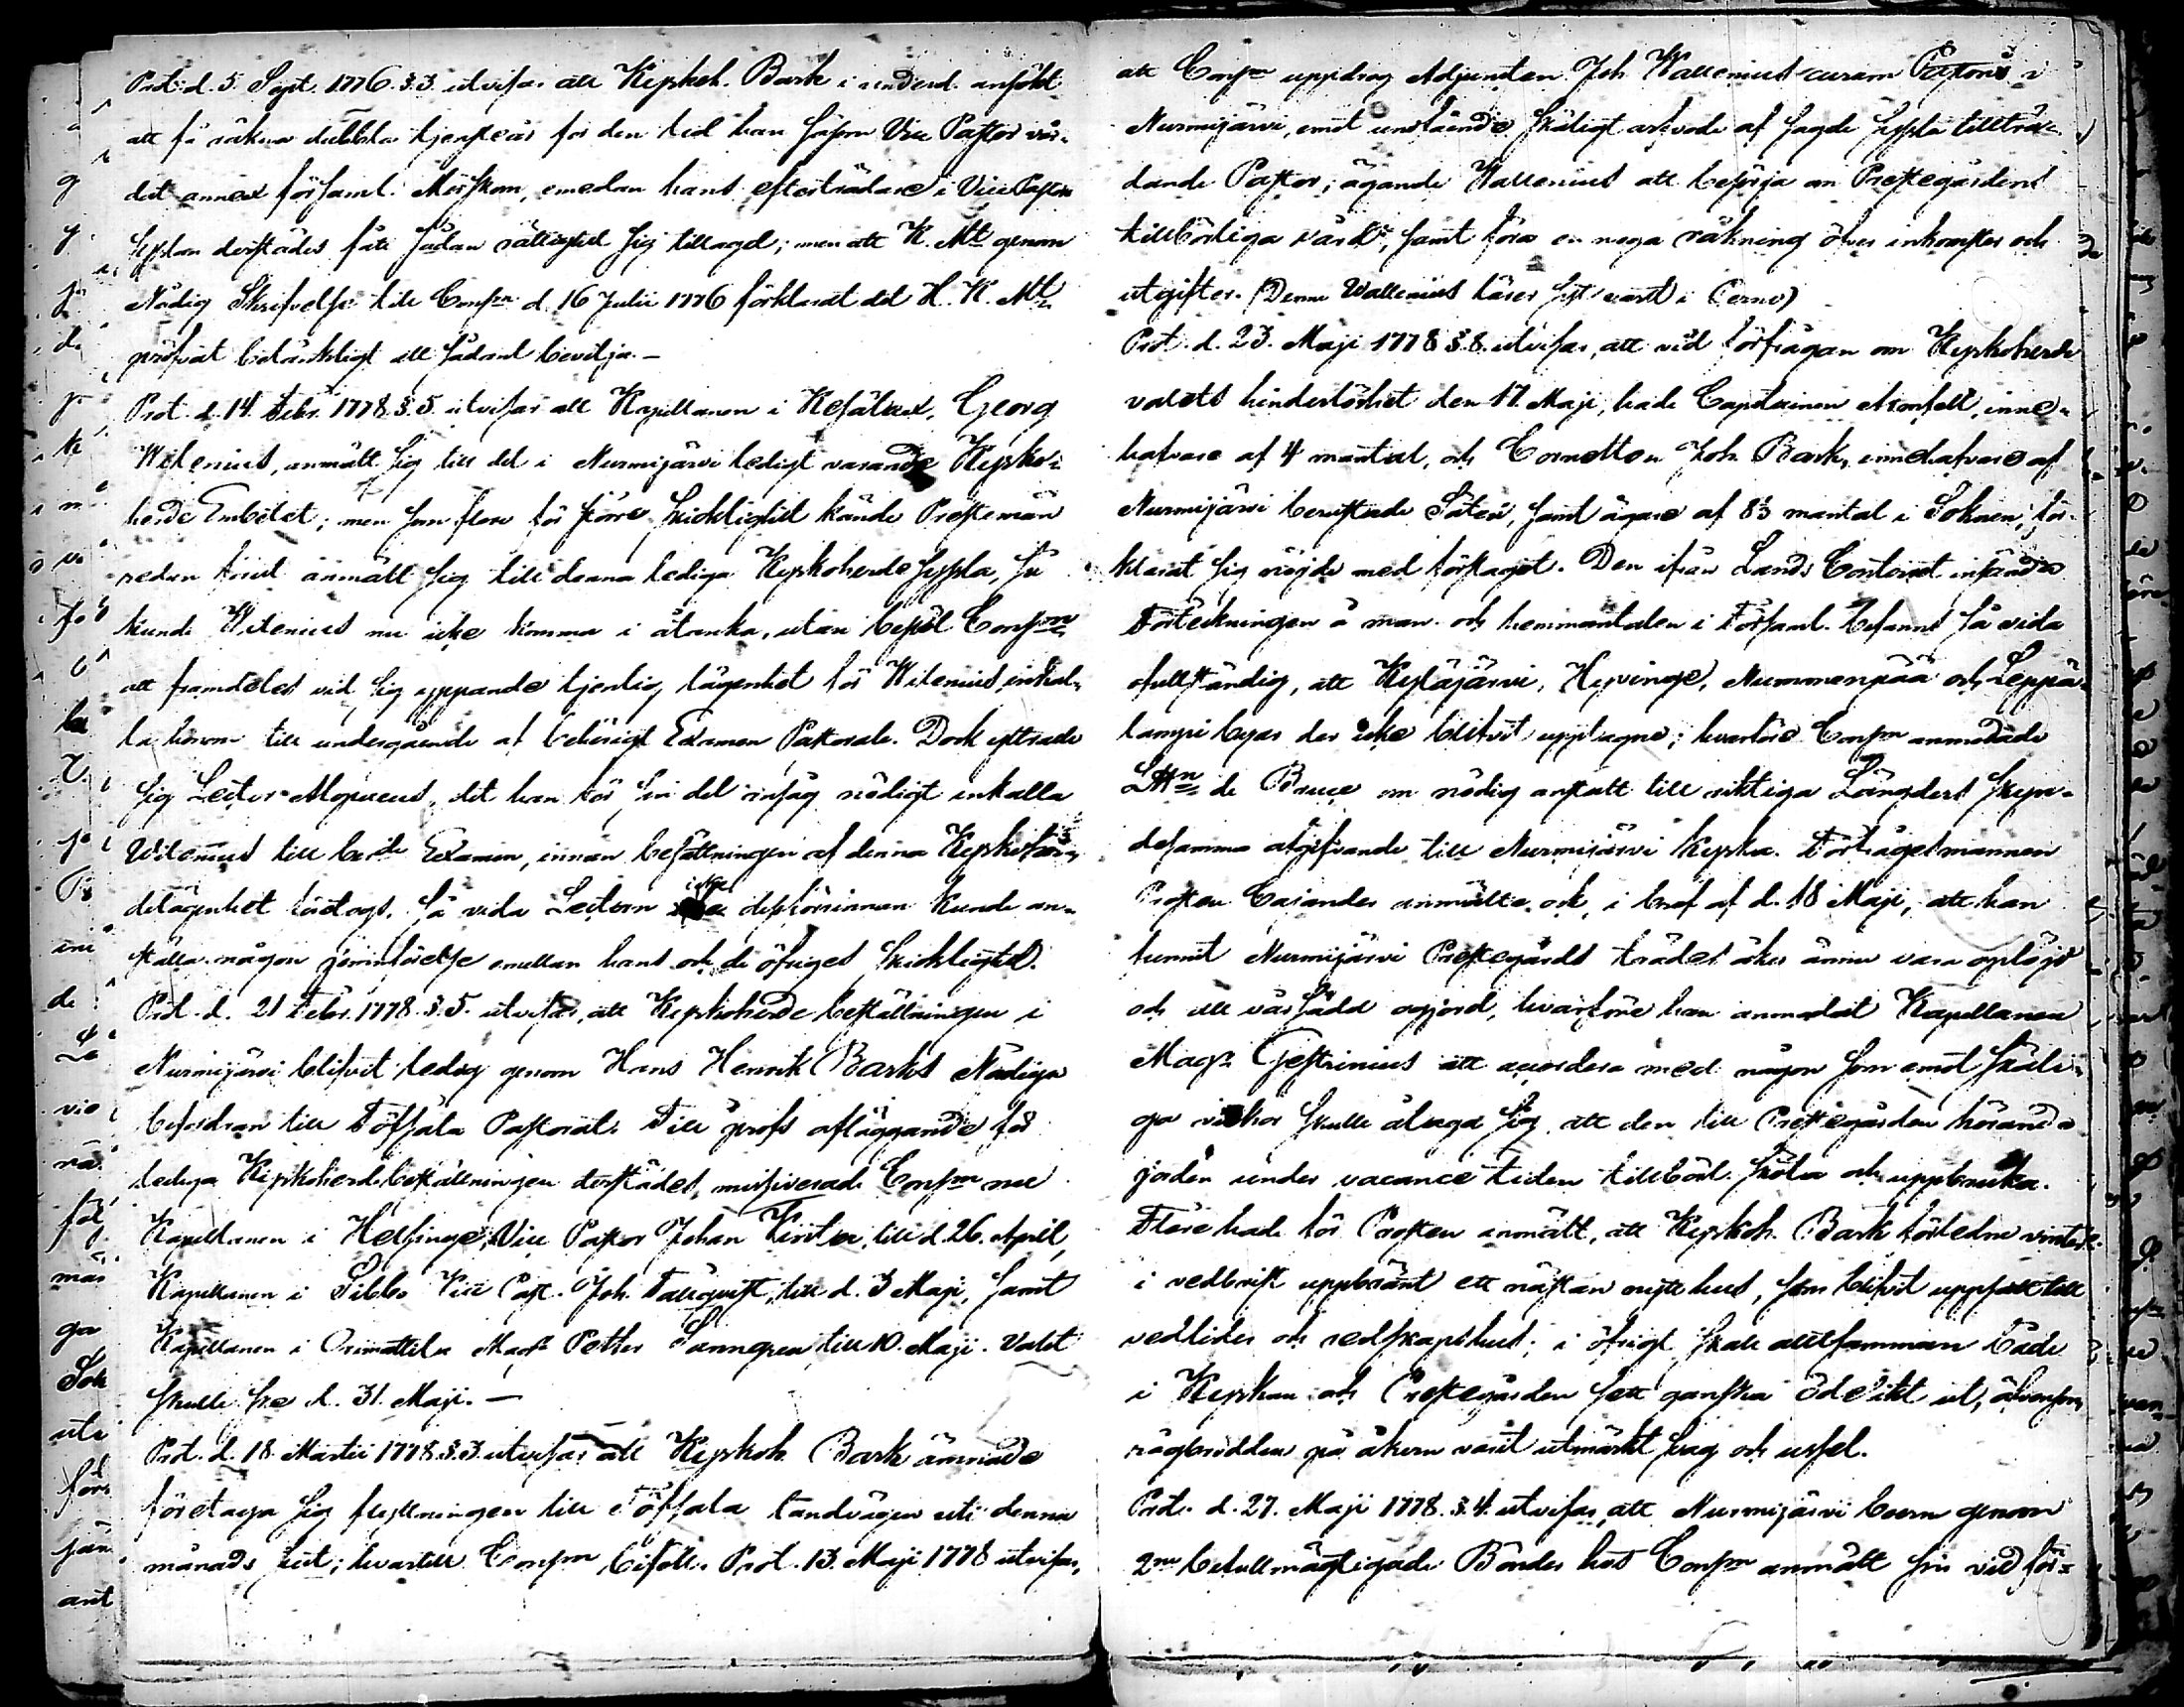 Prot. d. 5. Sept. 1776. §.3. utvisar att Kyrkoh. Bark i underd. ansökt
att få räkna dubbla tjensteår för den tid han såsom Vice Pastor vår-
dat annex församl. Mörskom, emedan hans efterträdare i Vice Pastors
sysslan derstädes fått sådan rättighet sig tillagd; men att K. Mt genom
Nådig Skrifvelse till Consm d. 16 Julii 1776 förklarat det H. K. Mt
pröfvat betänkligt att sådant bevilja. —
Prot. d. 14. Febr. 1778. §.5. utvisar att Kapellanen i Kesälax, Georg
Witenius, anmält sig till det i Nurmijärvi ledigt varande Kyrko-
herde Embetet; men som flere för större skicklighet kände Prestemän
redan förut anmält sig till denna lediga Kyrkoherde syssla, så
kunde Witenius nu icke komma i åtanka, utan beföl Consm
att framdeles vid sig yppande tjenlig lägenhet för Witenius, inkal-
la honom till undergående af behörigt Examen Pastorale. Dock yttrade
sig Lector Alopaeus, det han för sin del ansåg nödigt inkalla
Witenius till berde Examen, innan besättningen af denna Kyrkoher-
delägenhet företogs, så vida Lectorn icke dessförinnan kunde an-
ställa någon jemnförelse emellan hans och de öfriges skicklighet.
Prot. d. 21 Febr. 1778. §.5. utvisar, att Kyrkoherde beställningen i
Nurmijärvi blifvit ledig genom Hans Henrik Barks Nådiga
befordran till Töfsala Pastorat. Till profs afläggande för
lediga Kyrkoherdebeställningen derstädes, missiverade Consm nu
Kapellanen i Helsinge, Vice Pastor Johan till d. 26. April,
Kapellanen i Sibbo Vice Past. Joh. Tallqvist, till d. 3 Maji, samt
Kapellanen i Orimattila Magr Petter till 10. Maji. Valet
skulle ske d. 31. Maji. —
Prot. d. 18. Martii 1778. §.3. utvisar att Kyrkoh. Bark ämnade
företaga sig flyttningen till Töfsala landvägen uti denna
månads slut; hvartill Consm biföll. Prot. 13. Maji 1778 utvisar,
att Consm uppdrog Adjuncten Joh. Wallenius curam Pastoris i
Nurmijärvi, emot åtnjutande skäligt arfvode af sagde syssla tillträ-
dande Pastor; ägande Wallenius att besörja om Prestegårdens
tillbörliga vård, samt föra en noga räkning öfver inkomster och
utgifter. (Denne Wallenius lärer sist varit i Perno)
Prot. d. 23. Maji 1778 §.8. utvisar, att vid förfrågan om Kyrkoherde
valets hinderlöshet den 17. Maji, hade Capitainen Armfelt, inne-
hafvare af 4 mantal, och Cornetten Joh. Bark, innehafvare af
Nurmijärvi berustade Säteri, samt ägare af 8⅓ mantal i Soknen, för-
klarat sig nöjde med förslaget. Den ifrån Lands Contoret insände
Förteckningen å man- och hemmantalen i Församl. befanns så vida
ofullständig, att Kytäjärvi, Hyvinge, Nummenpää och Leppä-
lampi byar der icke blifvit upptagne; hvarföre Consm anmodade
LHn de Bruce om nödig anstalt till riktiga Längders skyn-
desamma afgifvande till Nurmijärvi Kyrka. Förslagsmannen
Prosten Cajander anmälte ock, i bref af d. 18 Maji, att han
funnit Nurmijärvi Prestegårds trädesåker ännu vara oplöjd
och all vårsådd ogjord, hvarföre han anmodat Kapellanen
Magr Gestrinius att accordera med någon som emot skäli-
ga vilkor skulle åtaga sig, att den till Prestegården hörande
jorden under vacance tiden tillbörl. sköta och uppbruka.
Flere hade för Prosten anmält, att Kyrkoh. Bark förledne vinter
i vedbrist uppbränt ett nästan nytt hus, som blifvit uppsatt till
vedlider och redskapshus; i öfrigt skall alltsamman både
i Kyrkan och Prestegården sett ganska ödelikt ut, äfvensom
rågbrodden på åkern varit utmärkt svag och ussel.
Prot. d. 27. Maji 1778. §.4. utvisar, att Nurmijärvi boern genom
2ne befullmägtigade Bönder hos Consm anmält sin vid för-